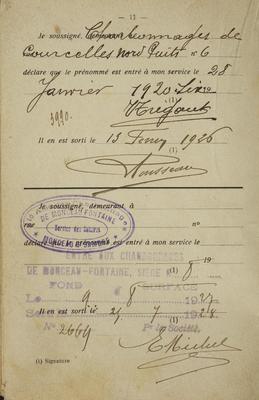 — 17 —
Je soussigné, Charbonnages de
Courcelles Nord Puits n° 6
déclare que le prénommé est entré à mon service le 28
Janvier 1920
3990.
(1)
Il en est sorti le 15 1926
(1)
Rousseau
Je soussigné, demeurant à
rue n°
DE MONCEAU-FONTAINE
Service des
déclare que le prénommé est entré à mon service le
ENTRÉ AUX CHARBONNAGES
DE MONCEAU-FONTAINE, SIÈGE 8
(1) 19
FOND SURFACE
Le 9 8 1927
Il en est sorti le 21 7 1928
N° 2669 Pr la Société,
E Michel
(1) Signature